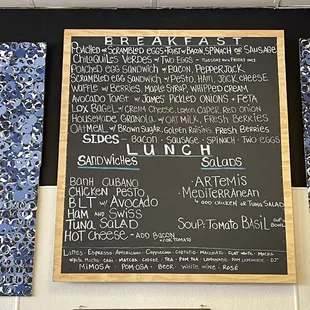 BREAKFAST
POACHED or SCRAMBLED EGGS + TOAST w/ BACON, SPINACH OR SAUSAGE
CHILAQUILES VERDES w/ TWO EGGS -
POACHED EGG SANDWICH w/ BACON, PEPPERJACK
SCRAMBLED EGG SANDWICH w/ PESTO, HAM, JACK CHEESE
WAFFLE w/ BERRIES, MAPLE SYRUP, WHIPPED CREAM
AVOCADO TOAST w/ JAMES' PICKLED ONIONS + FETA
LOX BAGEL w/ CREAM CHEESE, LEMON, CAPER, RED ONION
HOUSEMADE GRANOLA w/ OAT MILK, FRESH BERRIES
OATMEAL w/ BROWN SUGAR, GOLDEN RAISINS, FRESH BERRIES
SIDES - BACON · SAUSAGE · SPINACH · TWO EGGS
LUNCH
SANDWICHES
BANH CUBANO
CHICKEN PESTO
BLT w/ AVOCADO
HAM and SWISS
TUNA SALAD
HOT CHEESE - ADD BACON
+/OR TOMATO
SALADS
·ARTEMIS
·MEDITERRANEAN
+ ADD CHICKEN OR TUNA SALAD
SOUP: TOMATO BASIL CUP or BOWL
LATTES · ESPRESSO · AMERICANO · CAPPUCCINO · CORTADO · MACCHIATO · FLAT WHITE · MOCHA
WHITE MOCHA · CHAI · MATCHA · COFFEE · TEA · POM TEA · LEMONADE · POM LEMONADE · OJ
MIMOSA · POMOSA · BEER · WHITE WINE · ROSÉ